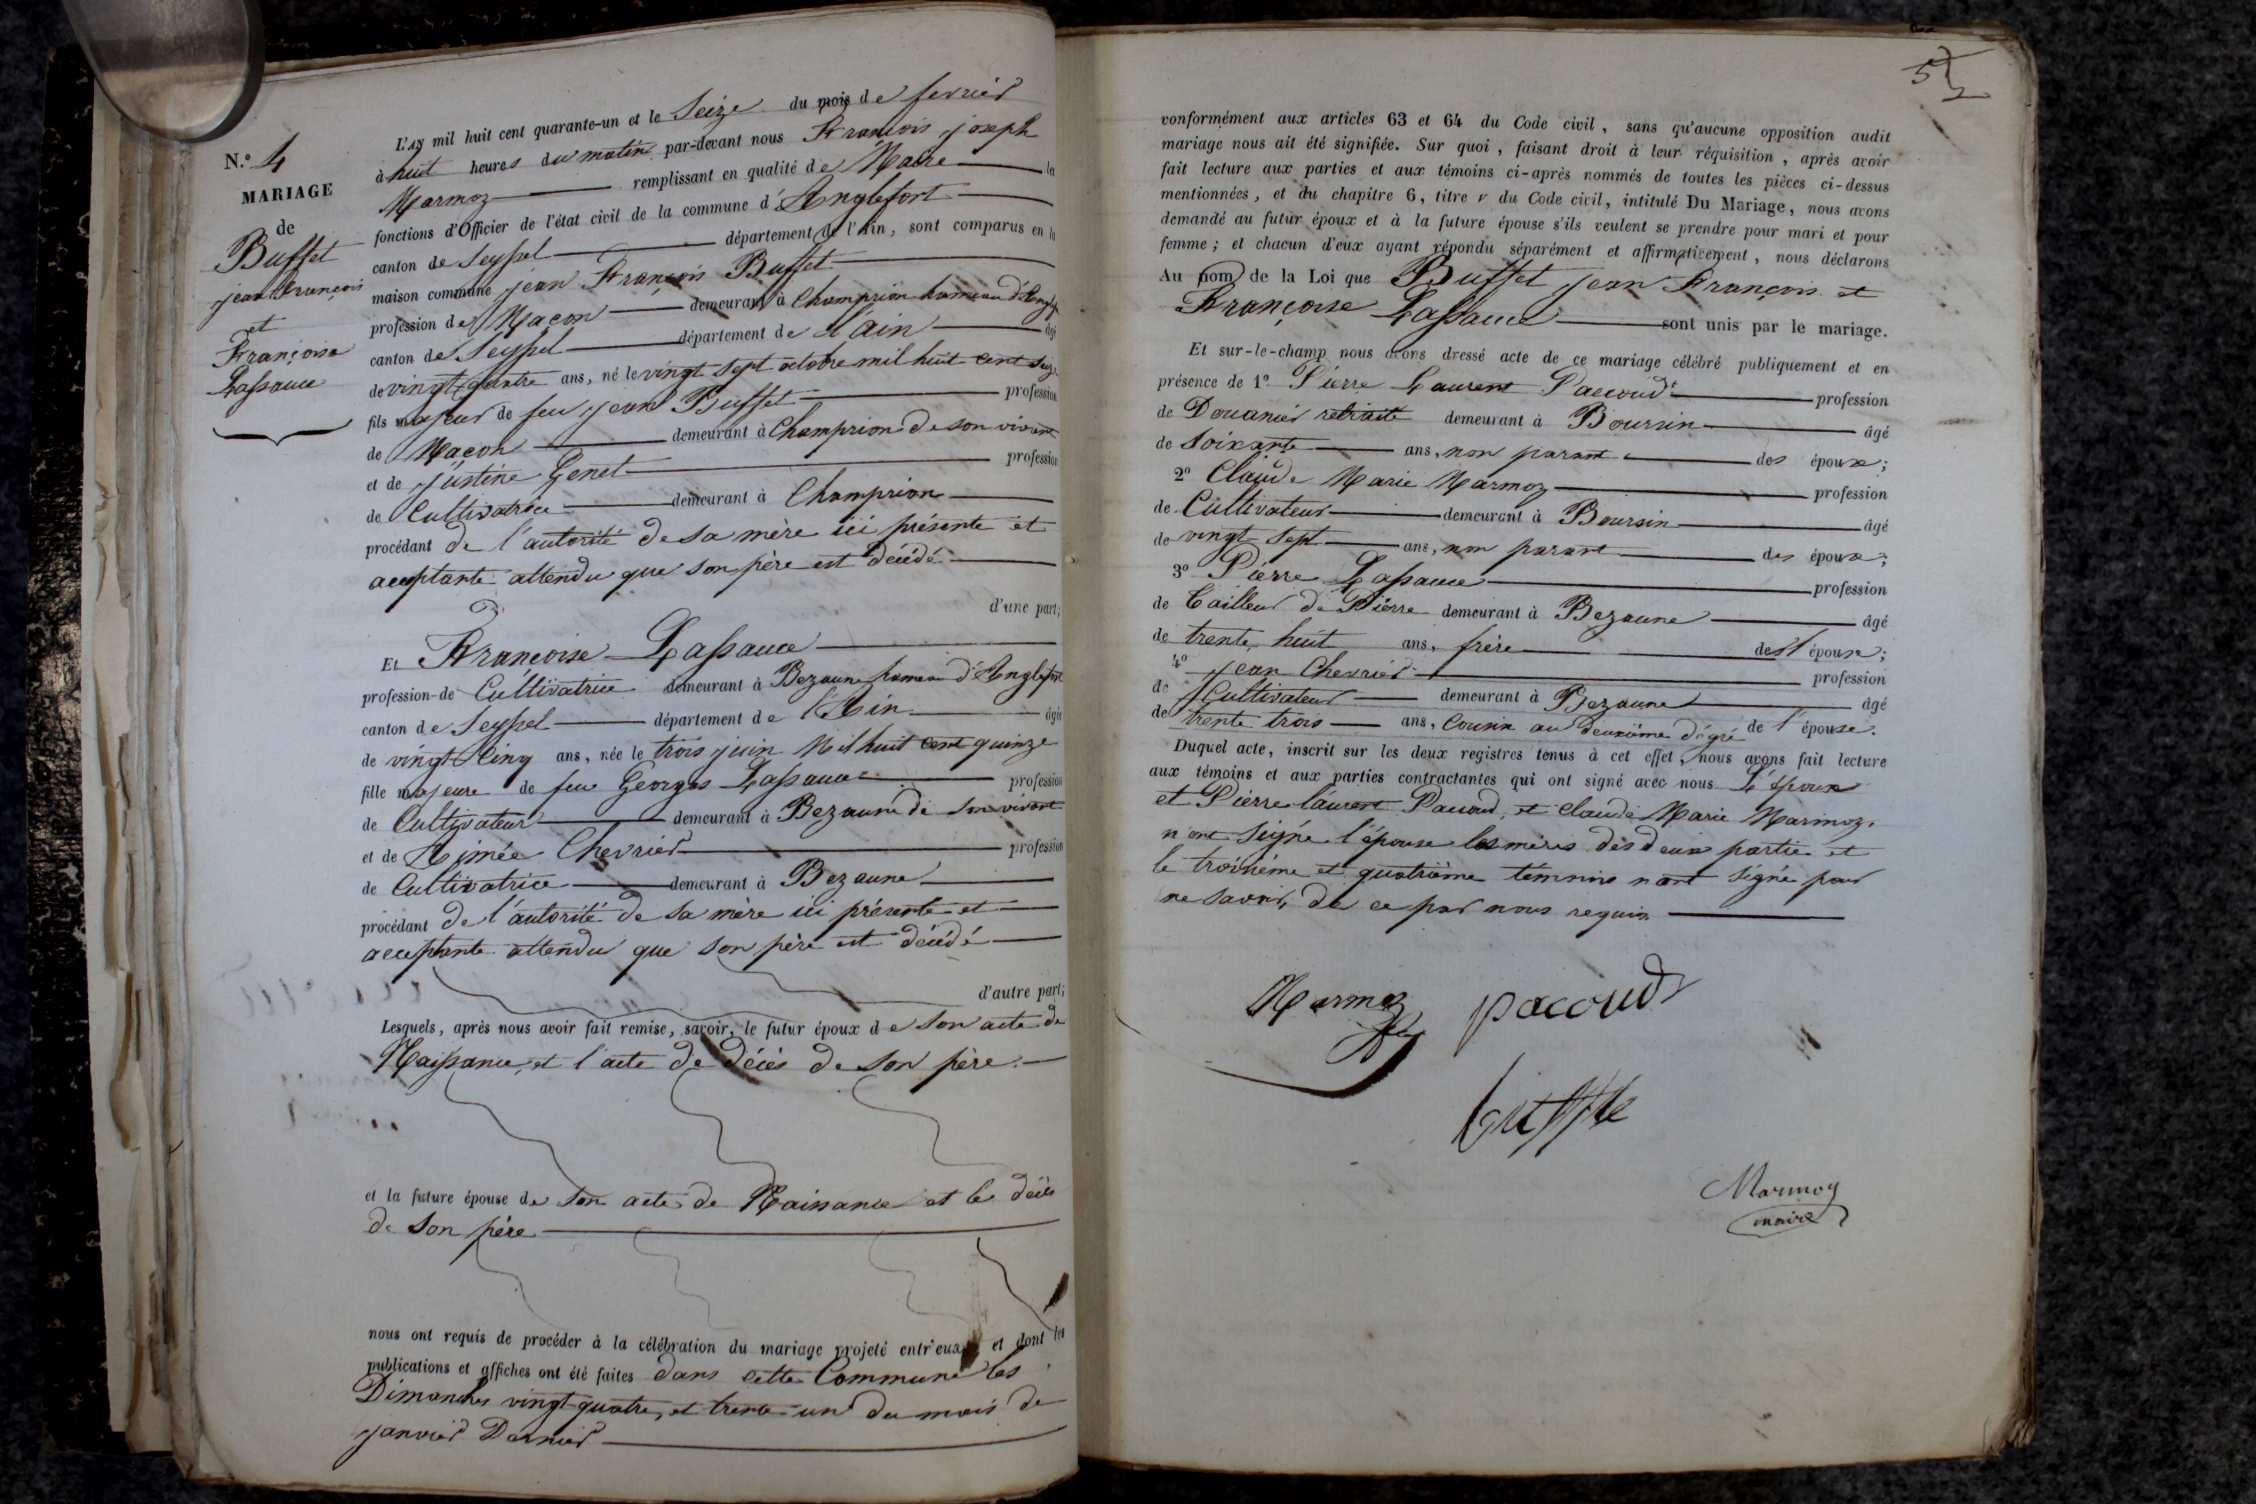 N.º 4
MARIAGE
de
Buffet
jean françois
et
Françoise
Lassauce
L'AN mil huit cent quarante-un et le Seize du mois de fevrier
à huit heures du matin par-devant nous François joseph
Marmoz remplissant en qualité de Maire les
fonctions d'Officier de l'état civil de la commune d'Anglefort
canton de Seyssel département de l'Ain, sont comparus en la
maison commune jean François Buffet
profession de Maçon demeurant à Champrion hameau d'Anglefort
canton de Seyssel département de l'ain âgé
de vingt quatre ans, né le vingt sept octobre mil huit cent seize
fils majeur de feu jean Buffet profession
de Maçon demeurant à Champrion de son vivant
et de justine Genet profession
de Cultivatrice demeurant à Champrion
procédant de l'autorité de sa mère ici présente et
acceptante attendu que son père est décédé
d'une part;
Et Françoise Lassauce
profession de Cultivatrice demeurant à Bezaune hameau d'Anglefort
canton de Seyssel département de l'Ain âgée
de vingt Cinq ans, née le trois juin Mil huit cent quinze
fille majeure de feu Georges Lassauce profession
de Cultivateur demeurant à Bezaune de son vivant
et de Aimée Chevrier profession
de Cultivatrice demeurant à Bezaune
procédant de l'autorité de sa mère ici présente et
acceptante attendu que son père est décédé
d'autre part;
Lesquels, après nous avoir fait remise, savoir, le futur époux de son acte de
Naissance, et l'acte de décès de son père.
et la future épouse de son acte de Naissance et le décès
de son père
nous ont requis de procéder à la célébration du mariage projeté entr'eux, et dont les
publications et affiches ont été faites dans cette Commune les
Dimanches vingt quatre, et trente-un du mois de
janvier Dernier
conformément aux articles 63 et 64 du Code civil, sans qu'aucune opposition audit
mariage nous ait été signifiée. Sur quoi, faisant droit à leur réquisition, après avoir
fait lecture aux parties et aux témoins ci-après nommés de toutes les pièces ci-dessus
mentionnées, et du chapitre 6, titre v du Code civil, intitulé Du Mariage, nous avons
demandé au futur époux et à la future épouse s'ils veulent se prendre pour mari et pour
femme; et chacun d'eux ayant répondu séparément et affirmativement, nous déclarons
Au nom de la Loi que Buffet jean François et
Françoise Lassauce sont unis par le mariage.
Et sur-le-champ nous avons dressé acte de ce mariage célébré publiquement et en
présence de 1º Pierre Laurent Pacoud profession
de Douanier retraité demeurant à Boursin âgé
de soixante ans, non parant des époux;
2º Claude Marie Marmoz profession
de Cultivateur demeurant à Boursin âgé
de vingt sept ans, non parant des époux;
3º Pierre Lassauce profession
de tailleur de Pierre demeurant à Bezaune âgé
de trente huit ans, frère de l'épouse;
4º jean Chevrier profession
de Cultivateur demeurant à Bezaune âgé
de trente trois ans, Cousin au deuxième dégré de l'épouse.
Duquel acte, inscrit sur les deux registres tenus à cet effet, nous avons fait lecture
aux témoins et aux parties contractantes qui ont signé avec nous L'époux
et Pierre laurent Pacoud, et claude Marie Marmoz,
n'ont Signé l'épouse les mères des deux partie et
le troisième et quatrième témoins n'ont signé pour
ne savoir, de ce par nous requis
Marmoz pacoud
buffet
Marmoz
maire